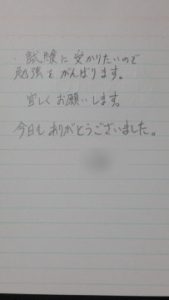 試験に受かりたいので
勉強をがんばります。
宜しくお願いします。
今日もありがとうございました。